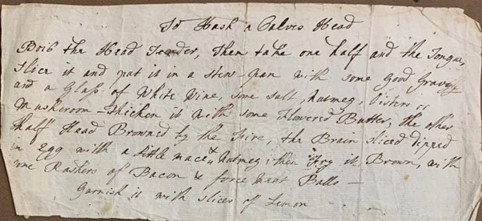 To Hash a Calves Head
Boil the Head Tender, then take one half and the Tongue,
Slice it and put it in a Stew-pan with some good Gravey
and a Glass of White Wine, some salt, Nutmeg, Oisters or
Musheroom - Thicken it with some Flowerd Butter, the other
half Head Browned by the fire, the Brain sliced dipped
in Egg with a little mace & Nutmeg, then Fry it Brown, with
some Rashers of Bacon & force Balls -
Garnish it with slices of Lemon